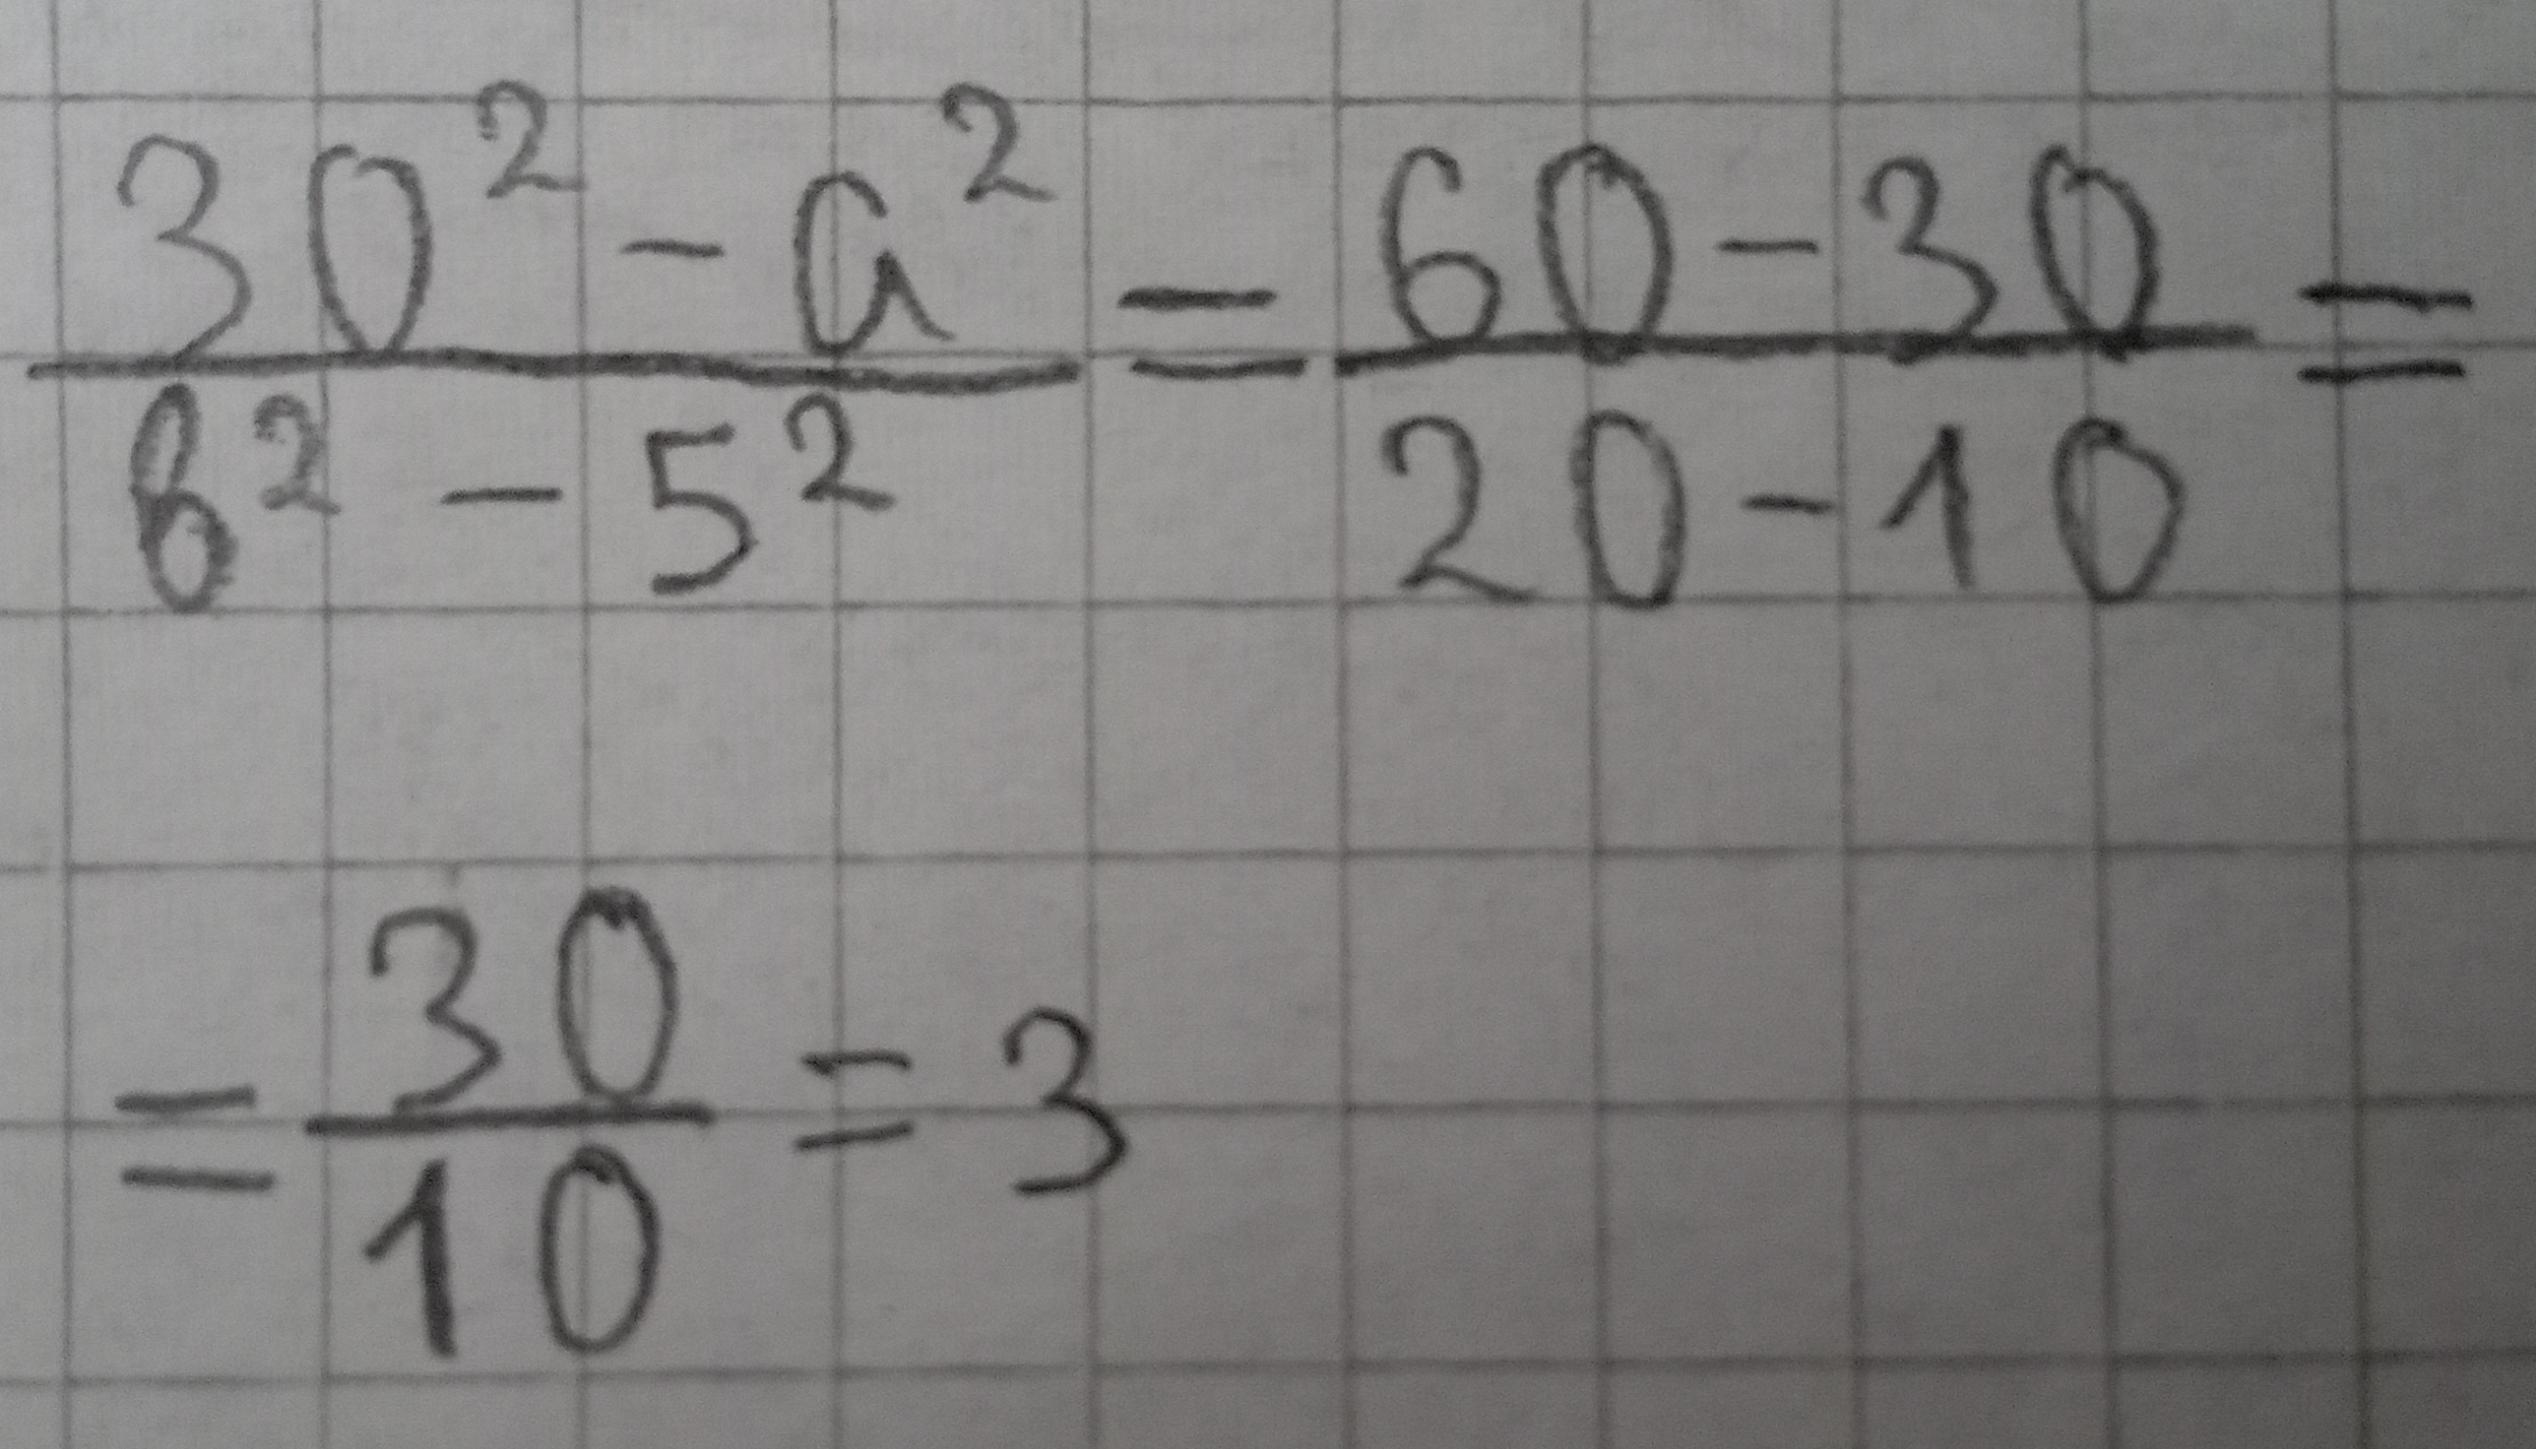 (30² - a²)/(b² - 5²) = (60 - 30)/(20 - 10) =
= 30/10 = 3